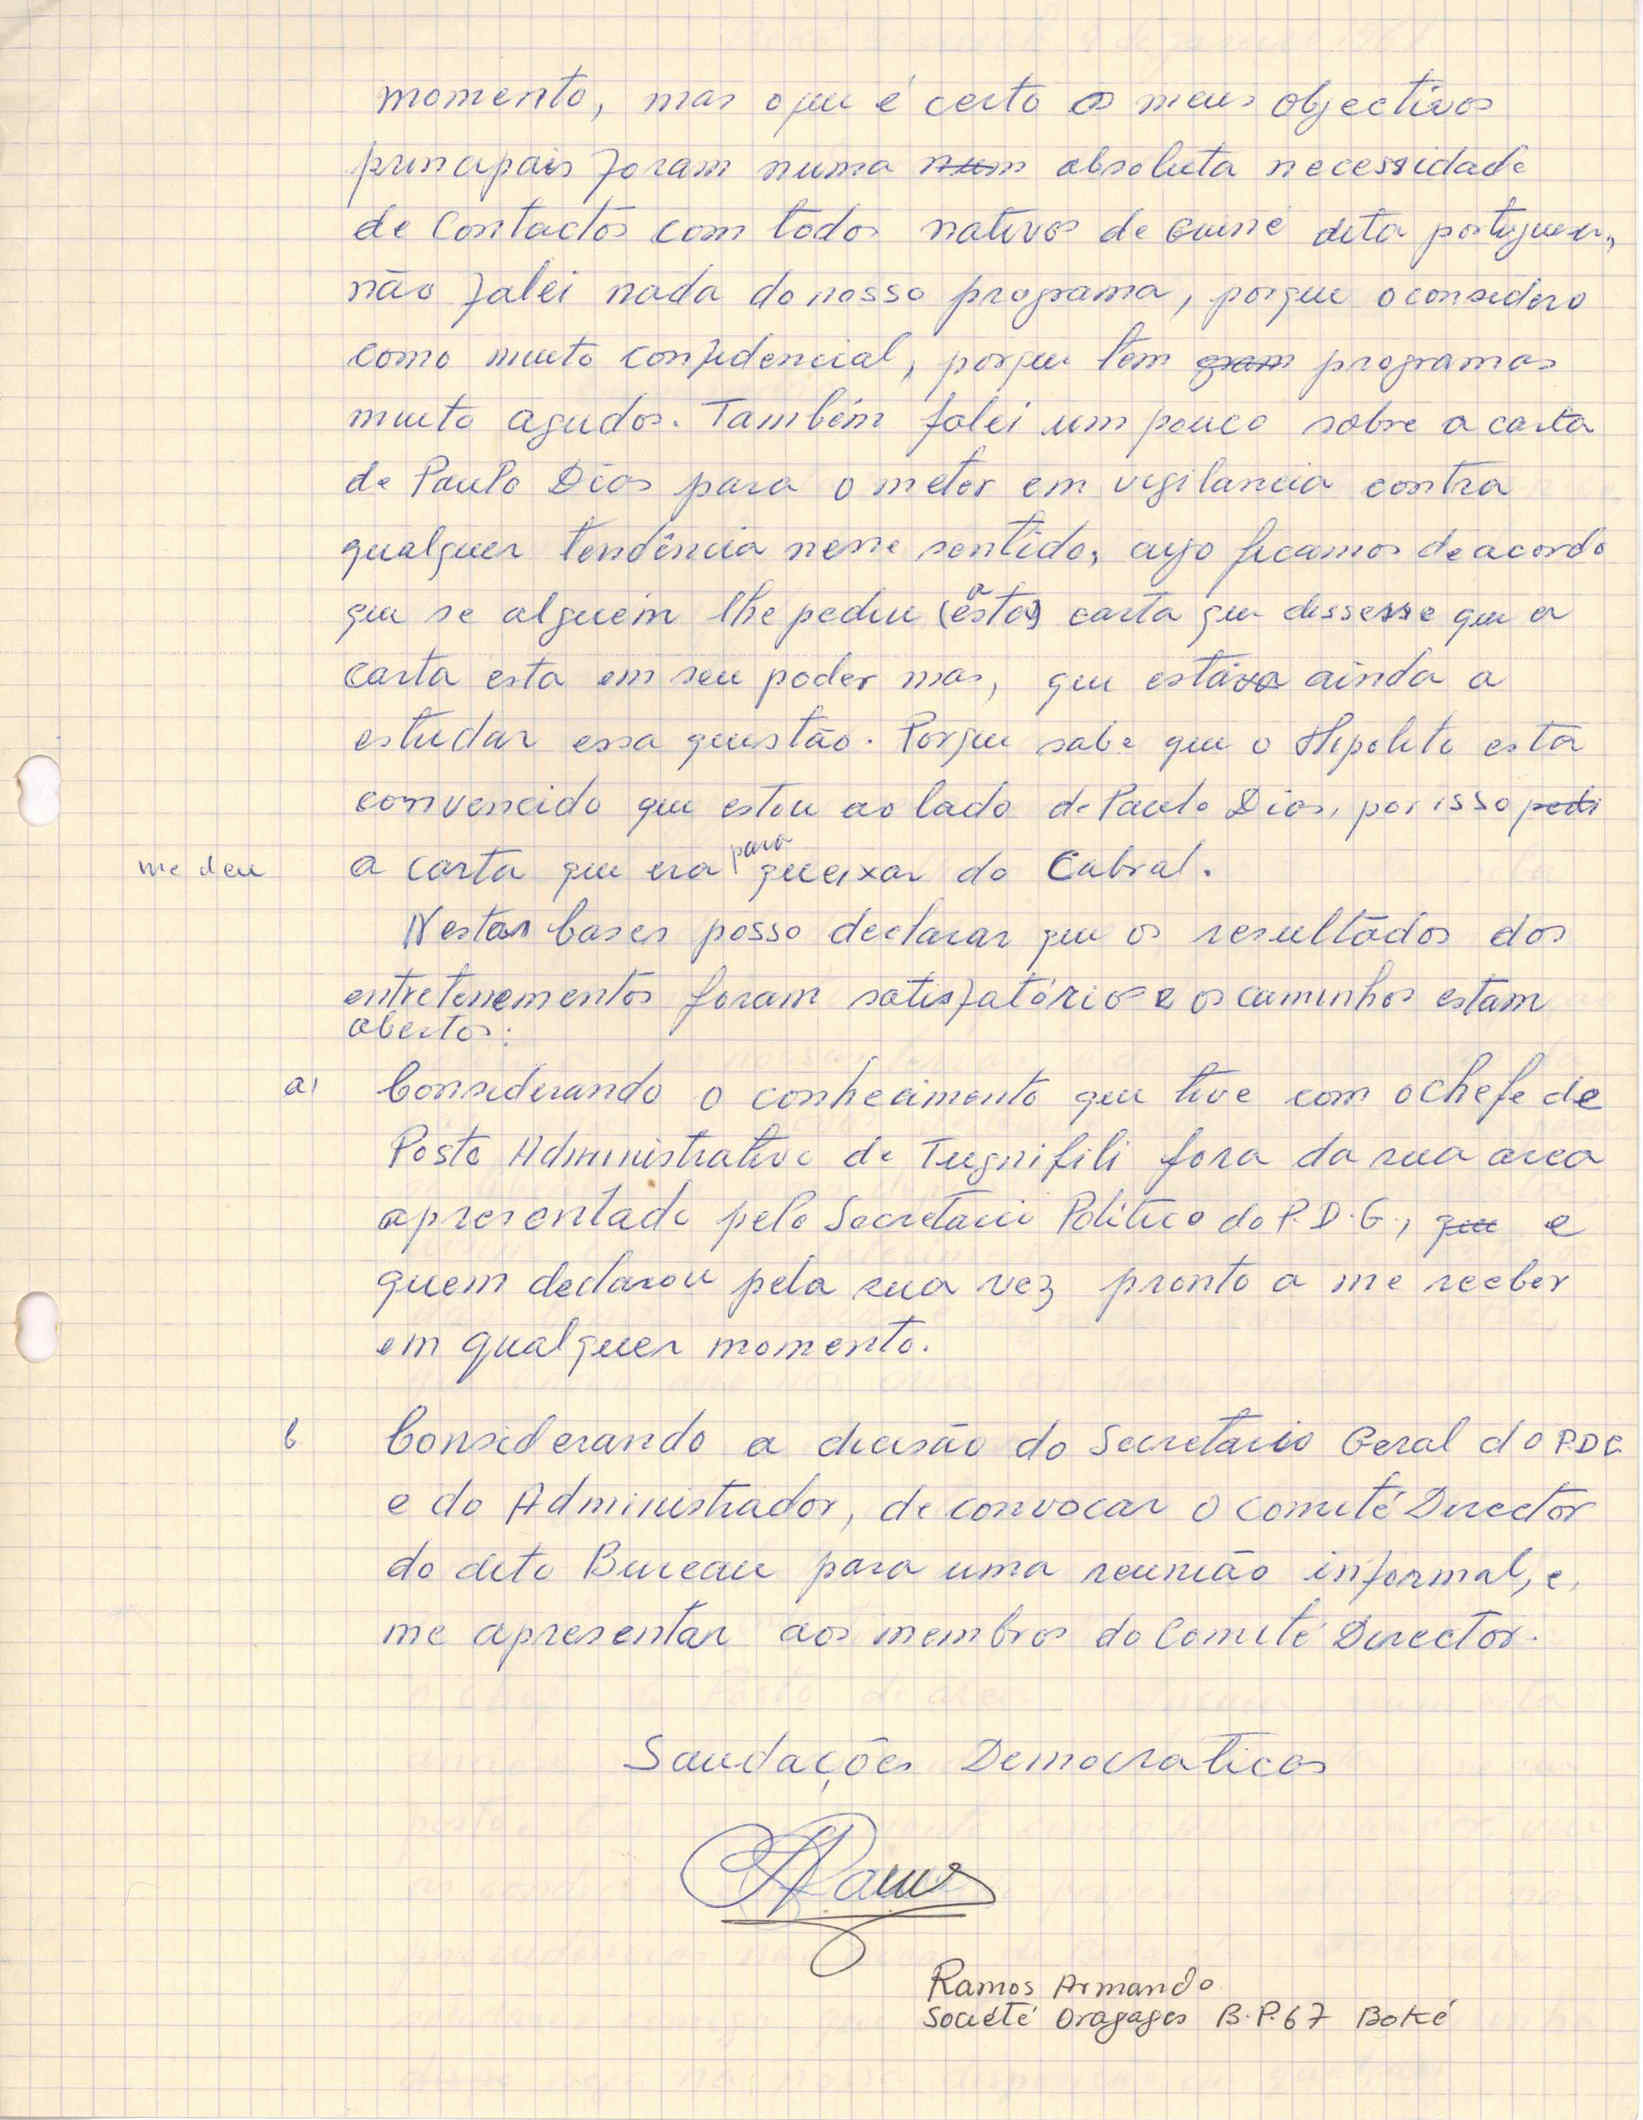 momento, mas o que é certo os meus objectivos
principais foram numa num absoluta necessidade
de Contactos com todos nativos de Guiné dita portuguesa,
não falei nada do nosso programa, porque o considero
como muito confidencial, porque tem programas
muito agudos. Também falei um pouco sobre a carta
de Paulo Dias para o meter em vigilancia contra
qualquer tendência nesse sentido, cujo ficamos de acordo
que se alguém lhe pediu (esta) carta que dissesse que a
carta esta em seu poder mas, que estava ainda a
estudar essa questão. Porque sabe que o Hipolito está
convencido que estou ao lado de Paulo Dias, por isso pedi
me deu a carta que era para queixar do Cabral.
Nestas bases posso declarar que os resultados dos
entretenementos foram satisfatórios e os caminhos estam
abertos:
a) Considerando o conhecimento que tive com o chefe de
Posto Administrativo de Tugnifili fora da sua area
apresentado pelo Secretario Politico do P.D.G., que e
quem declarou pela sua vez pronto a me receber
em qualquer momento.
b Considerando a decisão do Secretario Geral do P.D.G
e do Administrador, de convocar o Comité Director
do dito Bureau para uma reunião informal, e,
me apresentar aos membros do Comité Director.
Saudações Democraticas
ARamos
Ramos Armando
Societé Dragages B.P.67 Boké